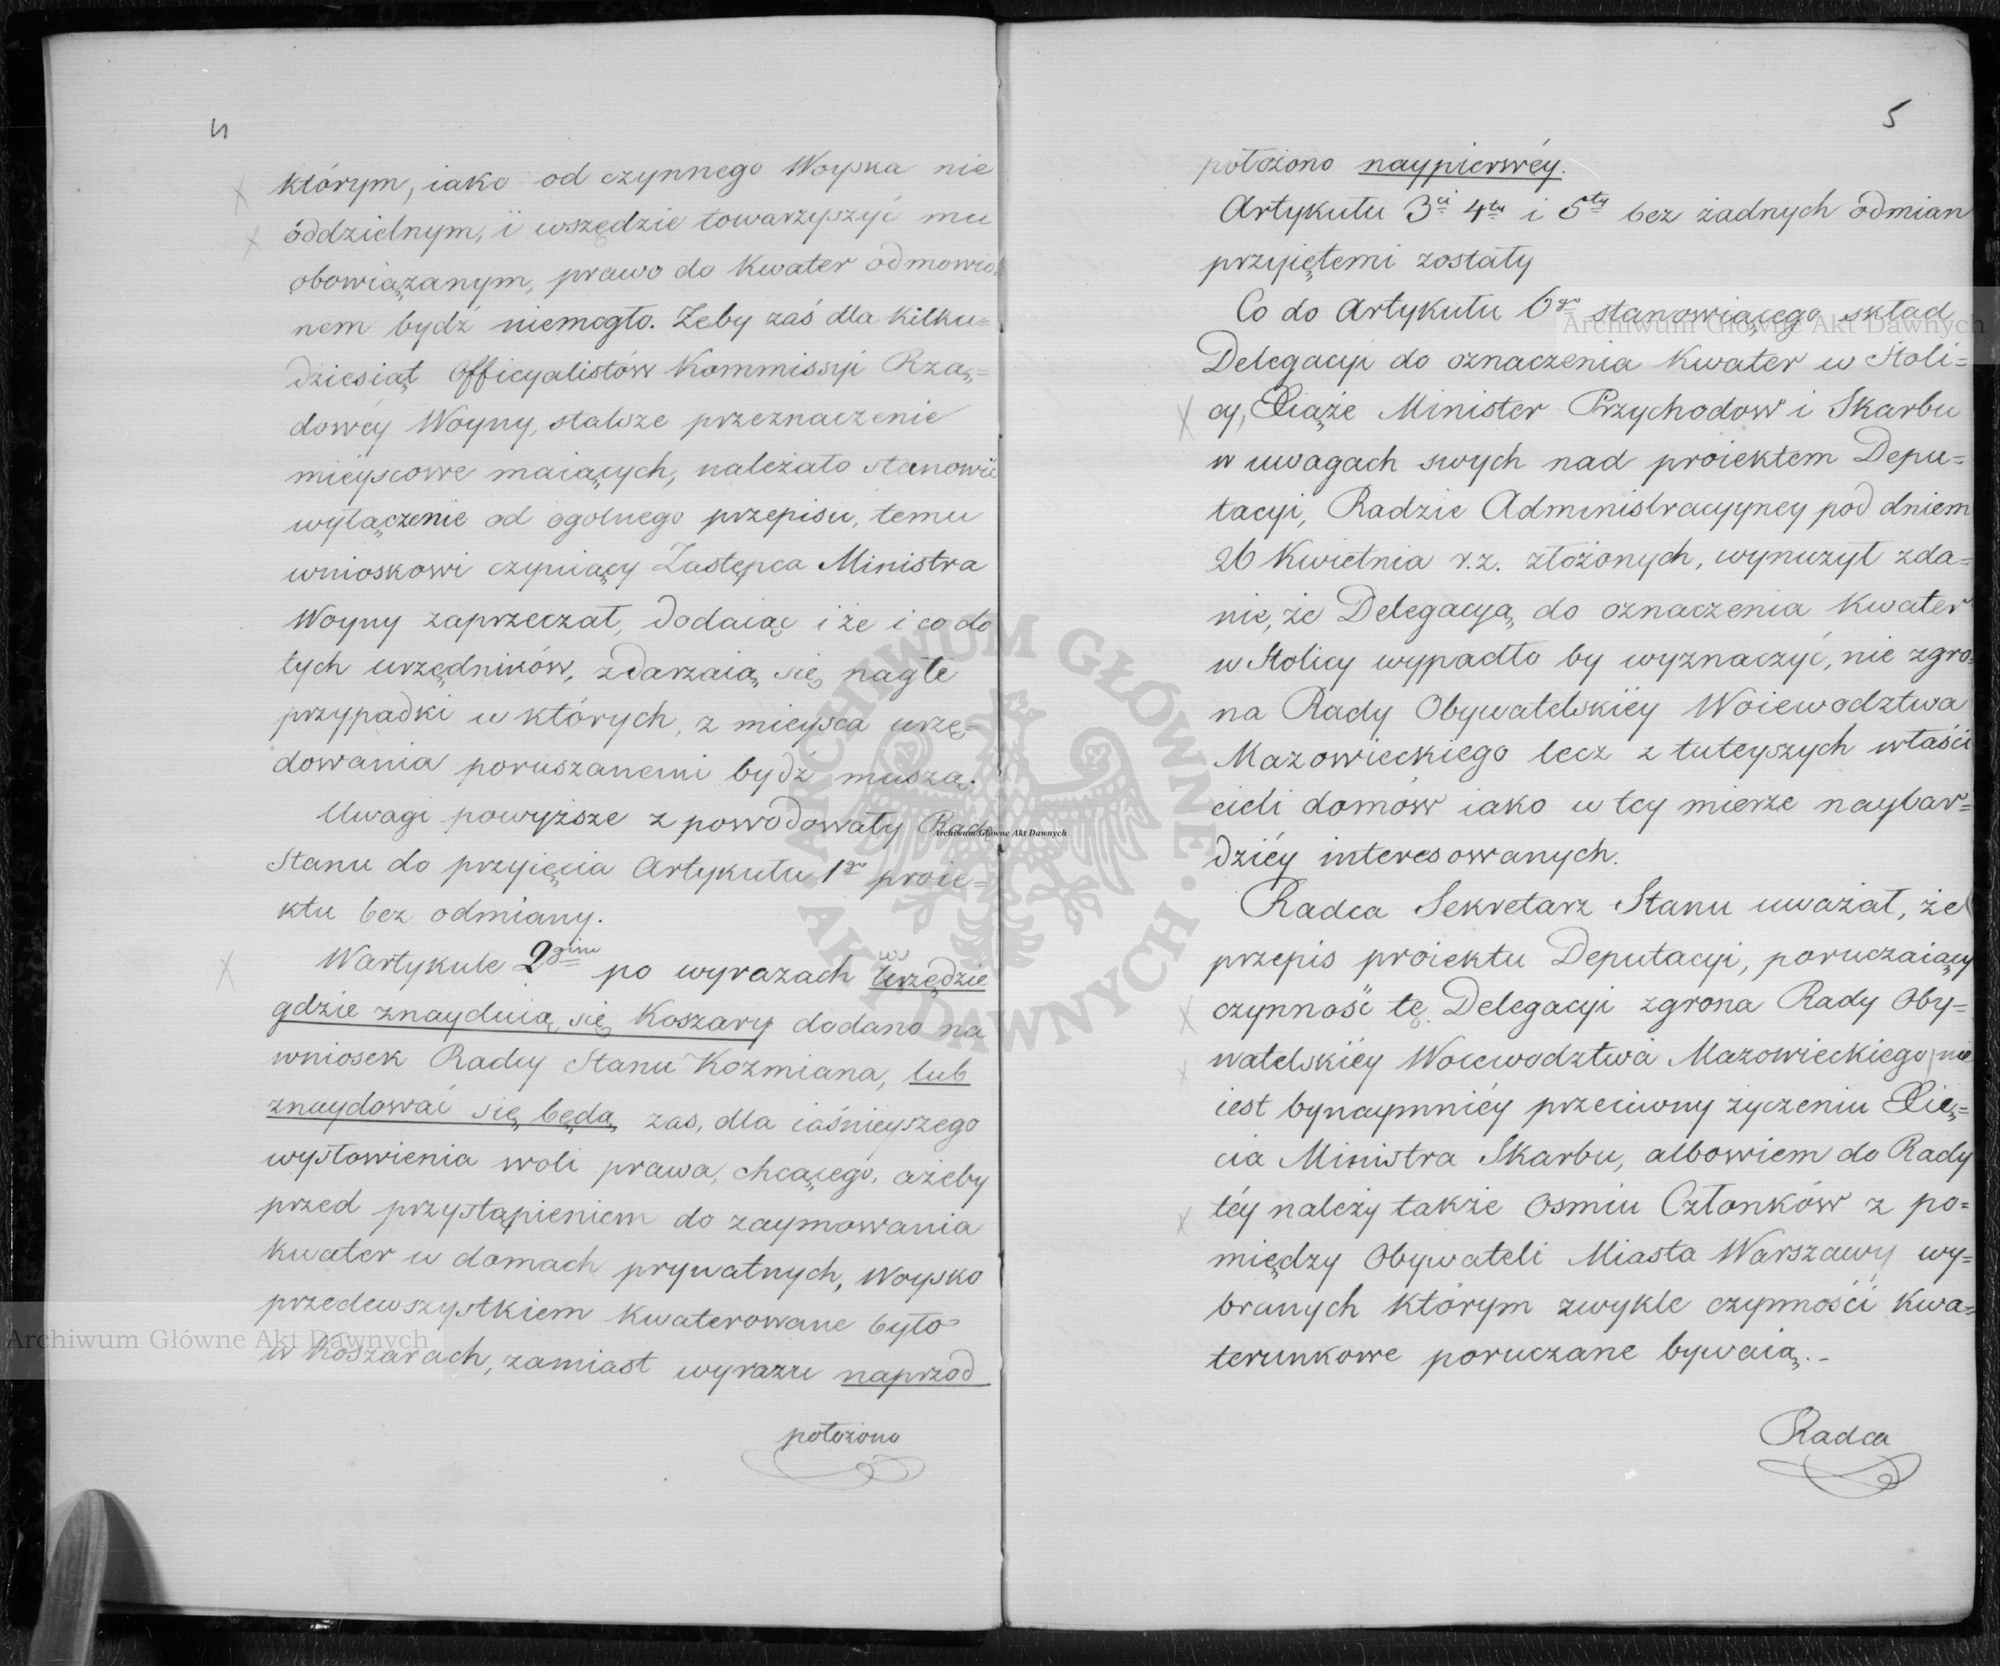 4
którym, iako od czynnego Woyska nie
oddzielnym, i wszędzie towarzyszyć mu
obowiązanym, prawo do Kwater odmowio-
nem bydź niemogło. Zeby zaś dla Kilku=
dziesiąt Officyalistów Kommissyi Rzą=
dowéy Woyny, stalsze przeznaczenie
mieyscowe maiących, należało stanowić
wyłączenie od ogolnego przepisu, temu
wnioskowi czyniący Zastępca Ministra
Woyny zaprzeczał, dodaiąc i że i co do
tych urzędników, zdarzaią się nagłe
przypadki w których, z mieysca urzę=
dowania poruszanemi bydź muszą.
Uwagi powyższe z powodowały Radę
Stanu do przyięcia Artykułu 1go proie=
ktu bez odmiany.
Wartykule 2gim po wyrazach wszędzie
gdzie znayduią się Koszary dodano na
wniosek Radcy Stanu Kozmiana, lub
znaydować się będą zas, dla iaśnieyszego
wysłowienia woli prawa, chcącego, ażeby
przed przystąpieniem do zaymowania
kwater w domach prywatnych, Woysko
przedewszystkiem kwaterowane było
w Koszarach, zamiast wyrazu naprzod
położono
5
położono naypierwéy.
Artykułu 3ci 4ty i 5ty bez żadnych odmian
przyiętemi zostały
Co do Artykułu 6go stanowiącego skład
Delegacyi do oznaczenia Kwater w Stoli=
cy, Xiąże Minister Przychodow i Skarbu
w uwagach swych nad proiektem Depu=
tacyi, Radzie Administracyyney pod dniem
26 Kwietnia r.z. złożonych, wynurzył zda=
nie, że Delegacyą do oznaczenia Kwater
w Stolicy wypadło by wyznaczyć, nie zgro=
na Rady Obywatelskiéy Woiewodztwa
Mazowieckiego lecz z tuteyszych właści
cieli domów iako w tey mierze naybar=
dziéy interesowanych.
Radca Sekretarz Stanu uważał, że
przepis proiektu Deputacyi, poruczaiący
czynność tę Delegacyi zgrona Rady Oby=
watelskiéy Woiewodztwa Mazowieckiego, nie
iest bynaymniéy przeciwny życzeniu Xię=
cia Ministra Skarbu, albowiem do Rady
téy należy także Osmiu Członków z po=
między Obywateli Miasta Warszawy wy=
branych którym zwykle czynności Kwa=
terunkowe poruczane bywaią.-
Radca
Archiwum Główne Akt Dawnych
Archiwum Główne Akt Dawnych
Archiwum Główne Akt Dawnych
ARCHIWUM GŁÓWNE · AKT DAWNYCH ·